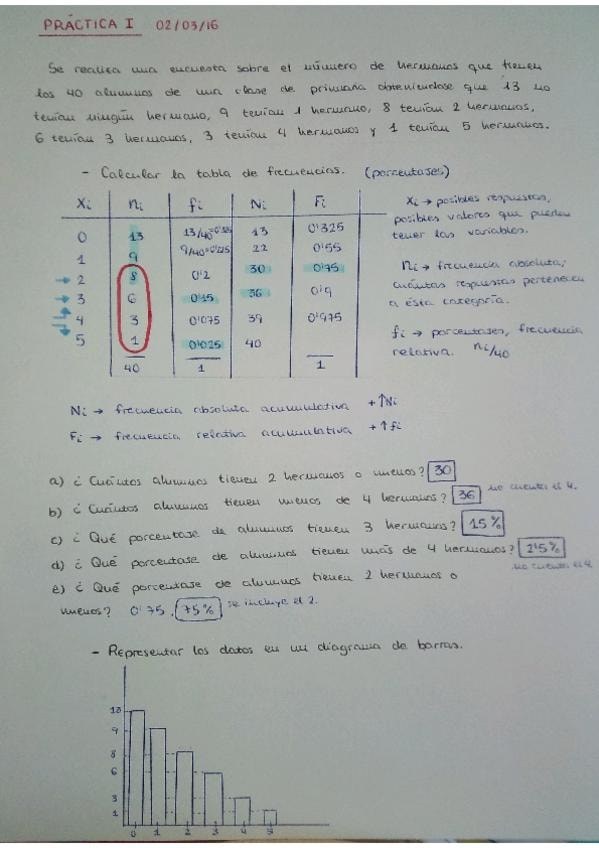 PRÁCTICA I 02/03/16
Se realiza una encuesta sobre el número de hermanos que tienen
los 40 alumnos de una clase de primaria obteniendose que 13 no
tenían ningún hermano, 9 tenían 1 hermano, 8 tenían 2 hermanos,
6 tenían 3 hermanos, 3 tenían 4 hermanos y 1 tenían 5 hermanos.
- Calcular la tabla de frecuencias. (porcentajes)
Xi ni fi Ni Fi
0 13 13/40=0'325 13 0'325
1 9 9/40=0'225 22 0'55
→ 2 8 0'2 30 0'75
→ 3 6 0'15 36 0'9
4 3 0'075 39 0'975
5 1 0'025 40
40 1 1
Xi → posibles respuestas,
posibles valores que pueden
tener las variables.
ni → frecuencia absoluta,
cuántas respuestas pertenecen
a ésta categoría.
fi → porcentajes, frecuencia
relativa. ni/40
Ni → frecuencia absoluta acumulativa +↑Ni
Fi → frecuencia relativa acumulativa +↑fi
a) ¿Cuántos alumnos tienen 2 hermanos o menos? 30
b) ¿Cuántos alumnos tienen menos de 4 hermanos? 36 no cuenta el 4.
c) ¿Qué porcentaje de alumnos tienen 3 hermanos? 15%
d) ¿Qué porcentaje de alumnos tienen más de 4 hermanos? 2'5%
no cuenta el 4
e) ¿Qué porcentaje de alumnos tienen 2 hermanos o
menos? 0'75, 75% se incluye el 2.
- Representar los datos en un diagrama de barras.
13
9
8
6
3
1
0 1 2 3 4 5